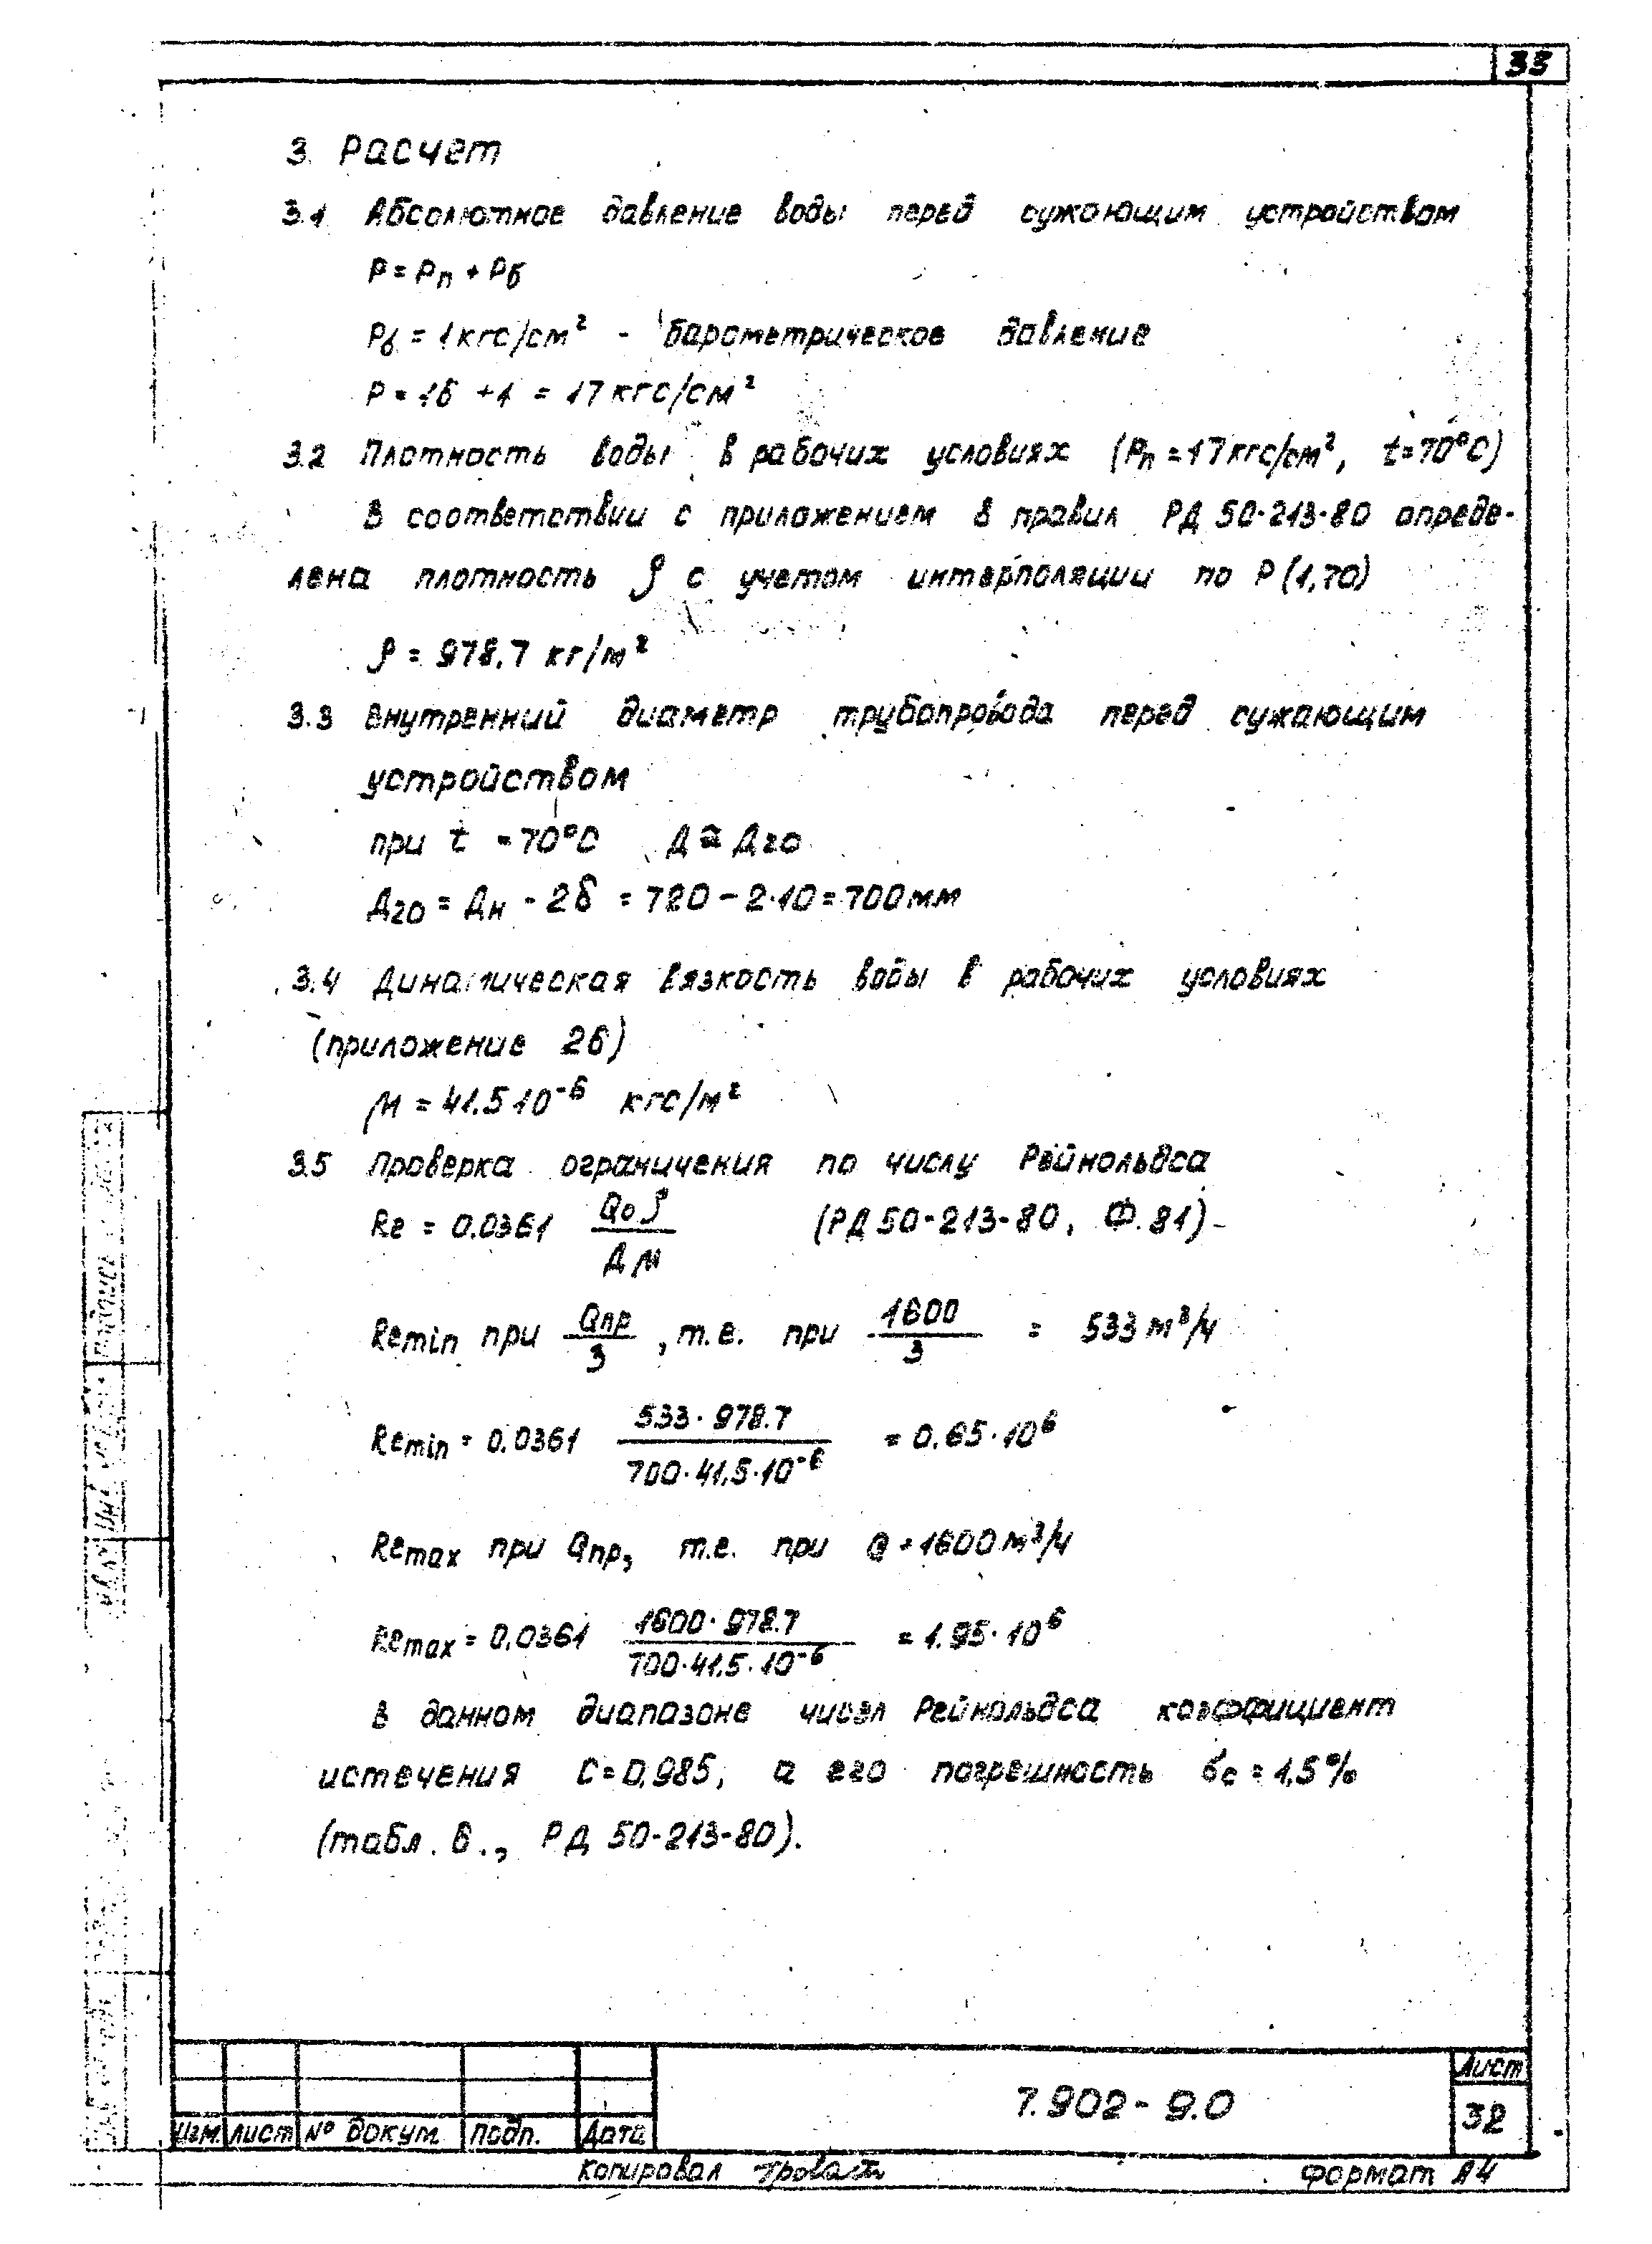 33
3. Расчет
3.1 Абсолютное давление воды перед сужающим устройством
Р = Рп + Рб
Рб = 1 кгс/см² - барометрическое давление
Р = 16 + 1 = 17 кгс/см²
3.2 Плотность воды в рабочих условиях (Рп = 17 кгс/см², t = 70°С)
В соответствии с приложением 8 правил РД 50-213-80 опреде-
лена плотность ρ с учетом интерполяции по Р (1,70)
ρ = 978,7 кг/м²
3.3 Внутренний диаметр трубопровода перед сужающим
устройством
при t = 70°С Д ≅ Д20
Д20 = Дн - 2δ = 720 - 2·10 = 700 мм
3.4 Динамическая вязкость воды в рабочих условиях
(приложение 26)
μ = 41,5 10⁻⁶ кгс/м²
3.5 Проверка ограничения по числу Рейнольдса
Re = 0,0361 Qо ρ / Д μ (РД 50-213-80, Ф. 81)
Remin при Qпр / 3, т.е. при 1600 / 3 = 533 м³/ч
Remin = 0,0361 533·978,7 / 700·41,5·10⁻⁶ = 0,65·10⁶
Remax при Qпр, т.е. при Q = 1600 м³/ч
Remax = 0,0361 1600·978,7 / 700·41,5·10⁻⁶ = 1,95·10⁶
В данном диапазоне чисел Рейнольдса коэффициент
истечения С = 0,985, а его погрешность бс = 1,5%
(табл. 6., РД 50-213-80).
7.902-9.0
Лист
32
Изм. Лист № докум. Подп. Дата
Копировал
Формат А4